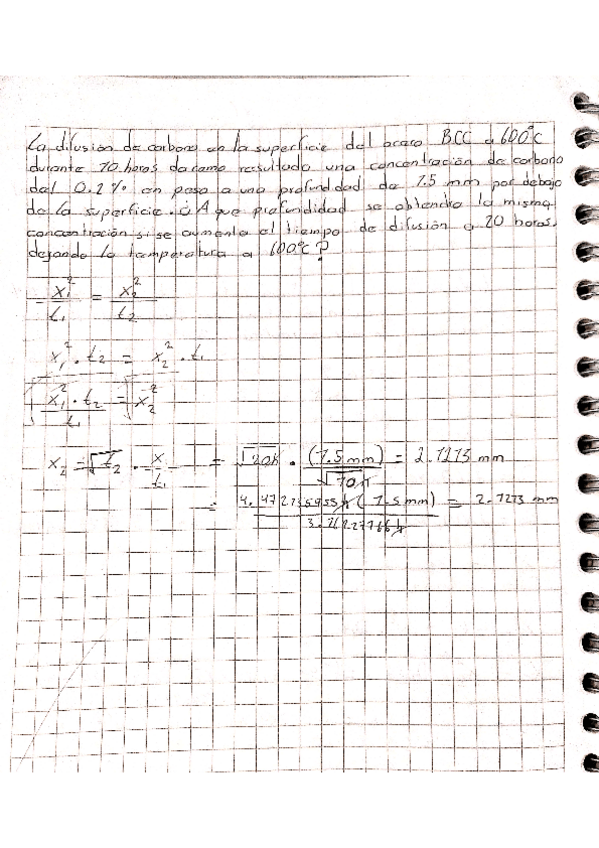 La difusión de carbono en la superficie del acero BCC a 600°C
durante 10 horas da como resultado una concentración de carbono
del 0.2% en peso a una profundidad de 1.5 mm por debajo
de la superficie. ¿A que profundidad se obtendra la misma
concentración si se aumenta el tiempo de difusión a 20 horas.
dejando la temperatura a 600°C?
x₁²/t₁ = x₂²/t₂
x₁² · t₂ = x₂² · t₁
√(x₁² · t₂/t₁) = √x₂²
x₂ = √t₂ · x/t₁ = √20h · (1.5 mm)/√10h = 2.1213 mm
= (1.5 mm) = 2.1213 mm